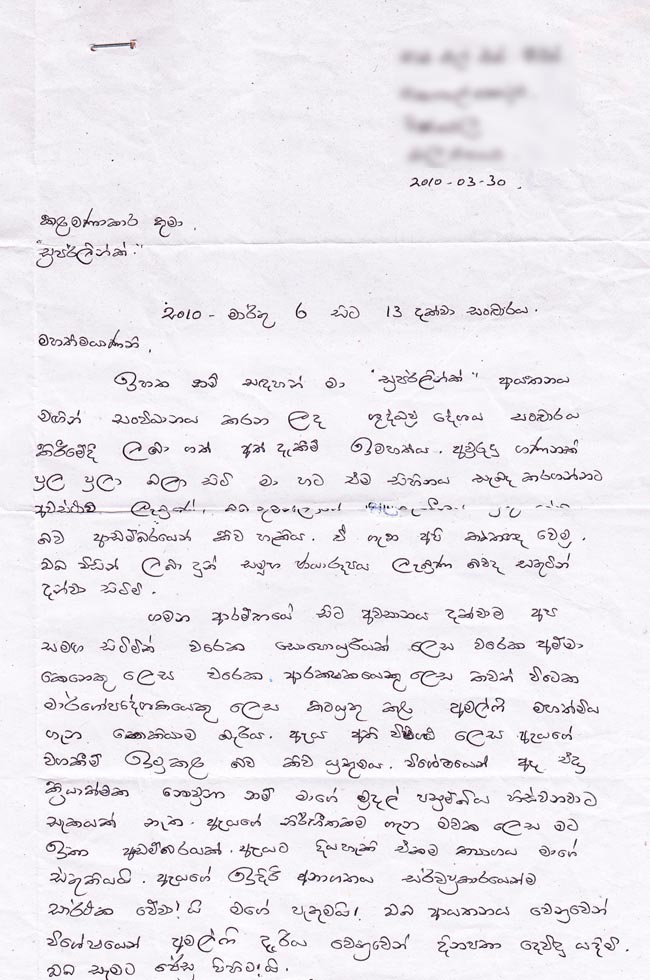 2010-03-30.
කළමණාකාර තුමා.
"සුපර්ලින්ක්"
2010 - මාර්තු 6 සිට 13 දක්වා සංචාරය.
මහත්මයාණනි,
ඉහත නම් සඳහන් මා "සුපර්ලින්ක්" ආයතනය
මඟින් සංවිධානය කරන ලද ශුද්ධවූ දේශය සංචාරය
කිරීමේදී ලබා ගත් අත් දැකීම් ඉමහත්ය. අවුරුදු ගණනක්
පුල පුලා බලා සිටි මා හට එම සිහිනය සැබෑ කරගන්නට
අවස්ථාව ලැබුණේ,
බව ආඩම්බරයෙන් කිව හැකිය. ඒ ගැන අපි කෘතඥ වෙමු.
ඔබ විසින් ලබා දුන් සමූහ ඡායාරූපය ලැබුණ බවද සතුටින්
දන්වා සිටිමි.
ගමන ආරම්භයේ සිට අවසානය දක්වාම අප
සමග සිටිමින් වරෙක සොහොයුරියක් ලෙස වරෙක අම්මා
කෙනෙකු ලෙස වරෙක ආරක්ෂකයෙකු ලෙස තවත් විටෙක
මාර්ගෝපදේශකයෙකු ලෙස කටයුතු කළ අමල්ෆි මහත්මිය
ගැන නොකියාම බැරිය. ඇය අති විශාල ලෙස ඇයගේ
වගකීම් ඉටුකළ බව කිව යුතුමය. විශේෂයෙන් ඇද එදා
ක්‍රියාත්මක නොවුනා නම් මාගේ මුදල් පසුම්බිය හිස්වනවාට
සැකයක් නැත. ඇයගේ නිර්භීතකම ගැන මවක ලෙස මට
ඉතා අඩම්බරයක්. ඇයට දියහැකි එකම ත්‍යාගය මාගේ
ස්තුතියයි. ඇයගේ ඉදිරි අනාගතය සර්වප්‍රකාරයෙන්ම
සාර්ථක වේවා! යි මගේ පැතුමයි! ඔබ ආයතනය වෙනුවෙන්
විශේෂයෙන් අමල්ෆි දැරිය වෙනුවෙන් දිනපතා දෙවිඳු යදිමි.
ඔබ සැමට ජේසු පිහිටයි.